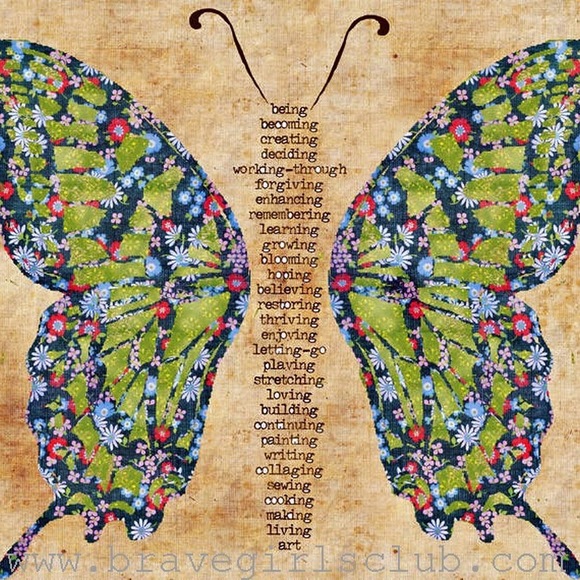 being
becoming
creating
deciding
working-through
forgiving
enhancing
remembering
learning
growing
blooming
hoping
believing
restoring
thriving
enjoying
letting-go
playing
stretching
loving
building
continuing
painting
writing
collaging
sewing
cooking
making
living
art
www.bravegirlsclub.com